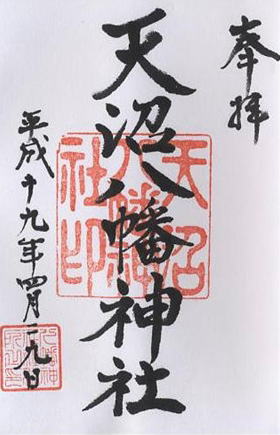 奉拝
天沼八幡神社
天沼八幡神社印
平成十九年四月二九日